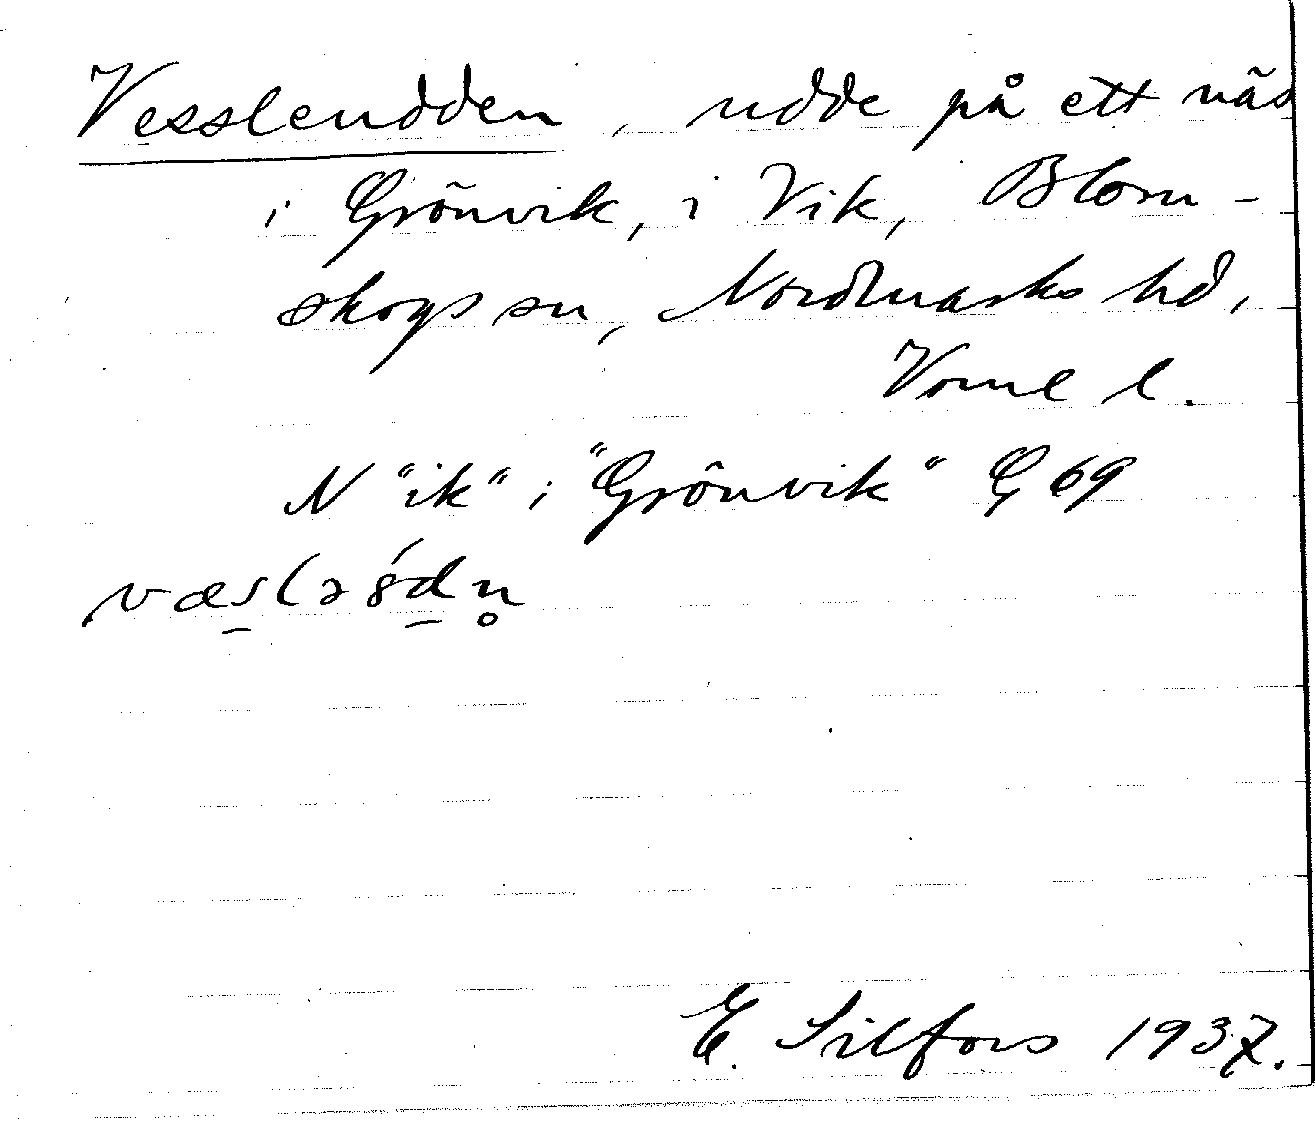 Vessleudden, udde på ett näs
i Grönvik, i Vik, Blom-
skogs sn, Nordmarks hd,
Vrml l.
N "ik" i "Grönvik" G 69
væs̠lə8́d̠n̥
E. Silfors 1937.